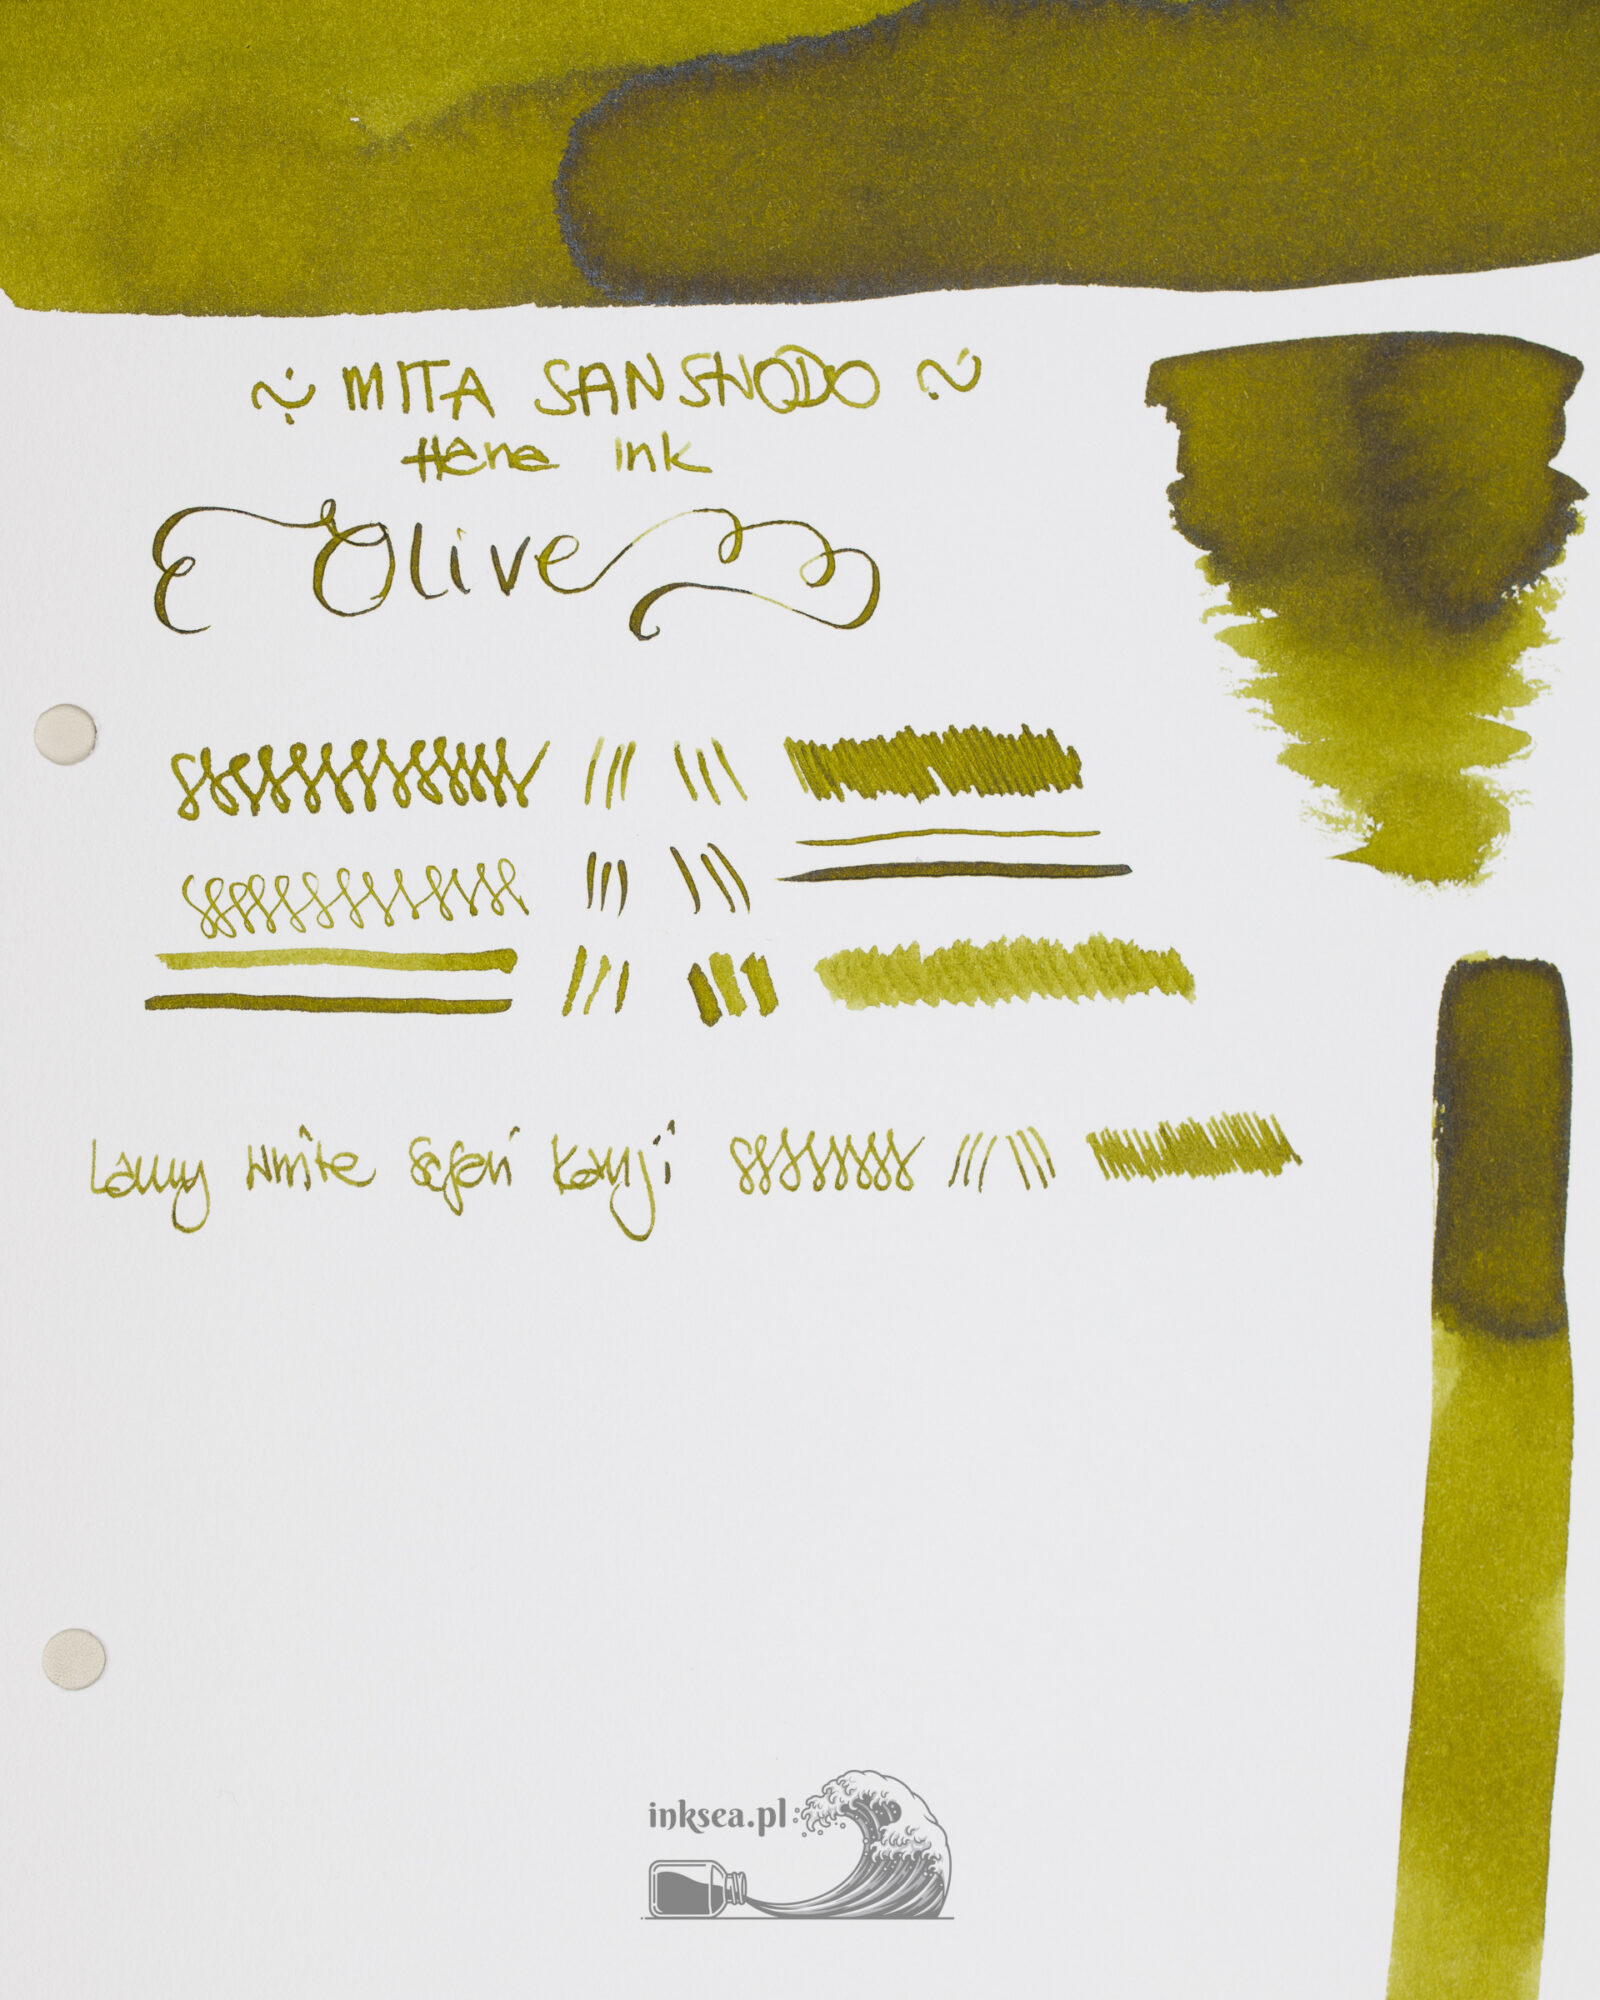 ~ MITA SANSHODO ~
Hene ink
Olive
Lamy white Safari Kanji
inksea.pl